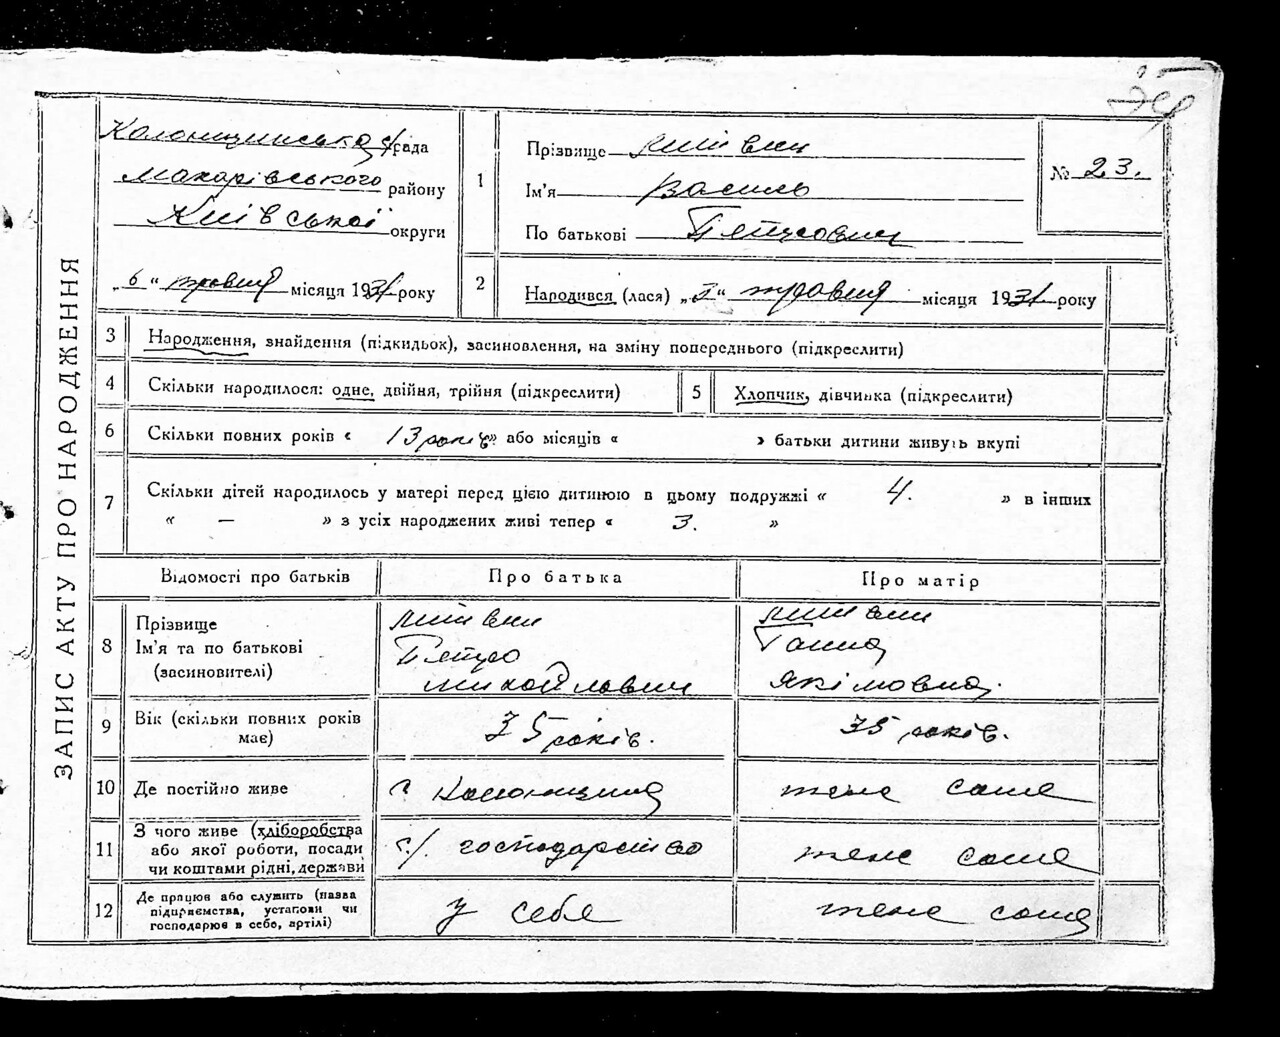 ЗАПИС АКТУ ПРО НАРОДЖЕННЯ
Колонщинська с/рада
Макарівського району
Київської округи
„6" травня місяця 1931 року
1
Прізвище
Ім'я Василь
По батькові Петрович
№ 23.
2
Народився (лася) „5" травня місяця 1931 року
3 Народження, знайдення (підкидьок), засиновлення, на зміну попереднього (підкреслити)
4 Скільки народилося: одне, двійня, трійня (підкреслити)
5 Хлопчик, дівчинка (підкреслити)
6 Скільки повних років « 13 років» або місяців « » батьки дитини живуть вкупі
7 Скільки дітей народилось у матері перед цією дитиною в цьому подружжі « 4. » в інших
« — » з усіх народжених живі тепер « 3. »
Відомості про батьків Про батька Про матір
8 Прізвище
Ім'я та по батькові Петро Ганна
(засиновителі) Михайлович Якімовна.
9 Вік (скільки повних років має) 35 років. 35 років.
10 Де постійно живе с. Колонщина теж саме
11 З чого живе (хліборобства
або якої роботи, посади
чи коштами рідні, держави с/. господарство теж саме
12 Де працює або служить (назва
підприємства, установи чи
господарює в себе, артілі) у себе теж саме